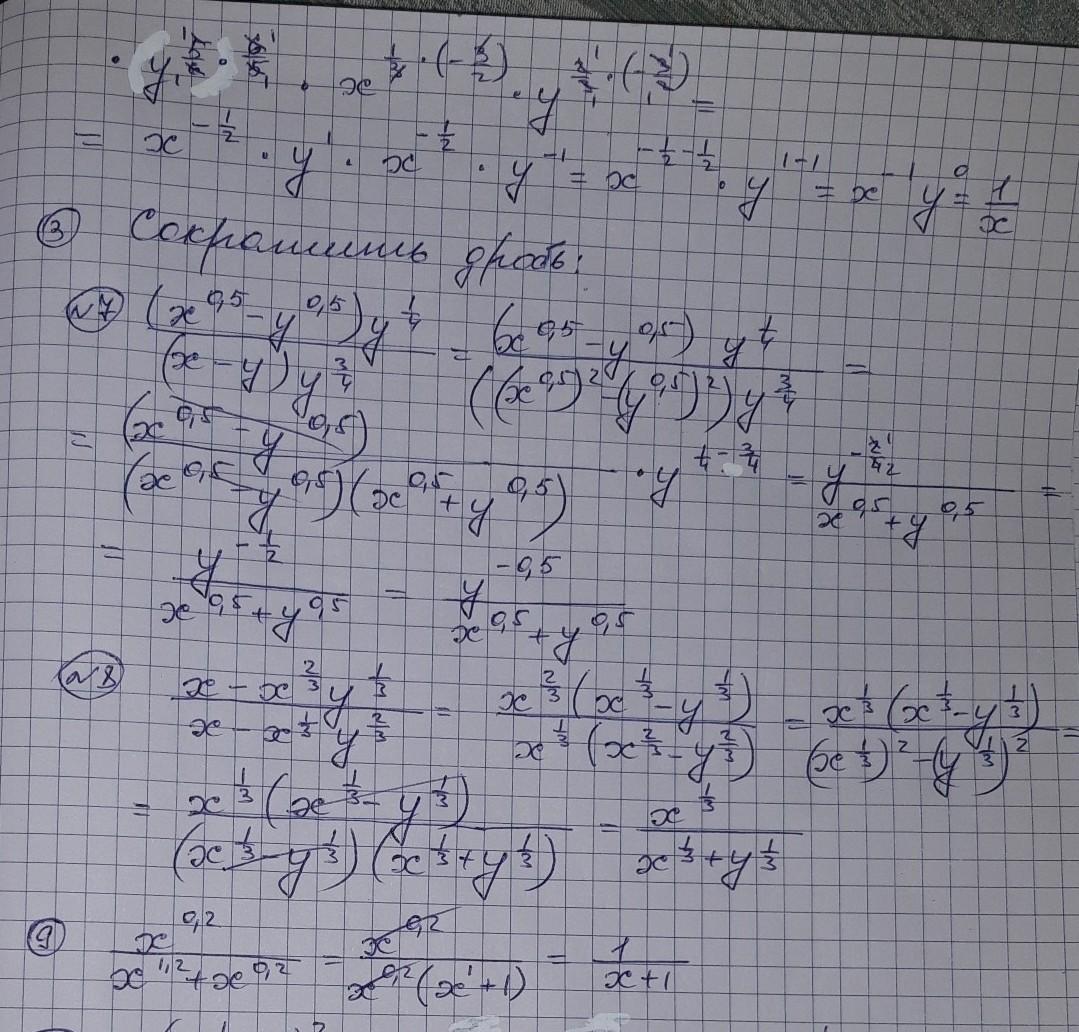 · (y) · x^{\frac{1}{2} · (-\frac{2}{2})} · y^{\frac{2}{2} · (-\frac{2}{2})} =
= x^{-\frac{1}{2}} · y^{1} · x^{-\frac{1}{2}} · y^{-1} = x^{-\frac{1}{2}-\frac{1}{2}} · y^{1-1} = x^{-1} y^{0} = \frac{1}{x}
③ Сократить дробь:
№7 \frac{(x^{0,5} - y^{0,5}) y^{\frac{1}{4}}}{(x - y) y^{\frac{3}{4}}} = \frac{(x^{0,5} - y^{0,5}) y^{\frac{1}{4}}}{((x^{0,5})^2 - (y^{0,5})^2) y^{\frac{3}{4}}} =
= \frac{(x^{0,5} - y^{0,5})}{(x^{0,5} - y^{0,5})(x^{0,5} + y^{0,5})} · y^{\frac{1}{4} - \frac{3}{4}} = \frac{y^{-\frac{2}{4}}}{x^{0,5} + y^{0,5}} =
= \frac{y^{-\frac{1}{2}}}{x^{0,5} + y^{0,5}} = \frac{y^{-0,5}}{x^{0,5} + y^{0,5}}
№8 \frac{x - x^{\frac{2}{3}} y^{\frac{1}{3}}}{x - x^{\frac{1}{3}} y^{\frac{2}{3}}} = \frac{x^{\frac{2}{3}} (x^{\frac{1}{3}} - y^{\frac{1}{3}})}{x^{\frac{1}{3}} (x^{\frac{2}{3}} - y^{\frac{2}{3}})} = \frac{x^{\frac{1}{3}} (x^{\frac{1}{3}} - y^{\frac{1}{3}})}{(x^{\frac{1}{3}})^2 - (y^{\frac{1}{3}})^2} =
= \frac{x^{\frac{1}{3}} (x^{\frac{1}{3}} - y^{\frac{1}{3}})}{(x^{\frac{1}{3}} - y^{\frac{1}{3}})(x^{\frac{1}{3}} + y^{\frac{1}{3}})} = \frac{x^{\frac{1}{3}}}{x^{\frac{1}{3}} + y^{\frac{1}{3}}}
⑨ \frac{x^{0,2}}{x^{1,2} + x^{0,2}} = \frac{x^{0,2}}{x^{0,2} (x^{1} + 1)} = \frac{1}{x + 1}